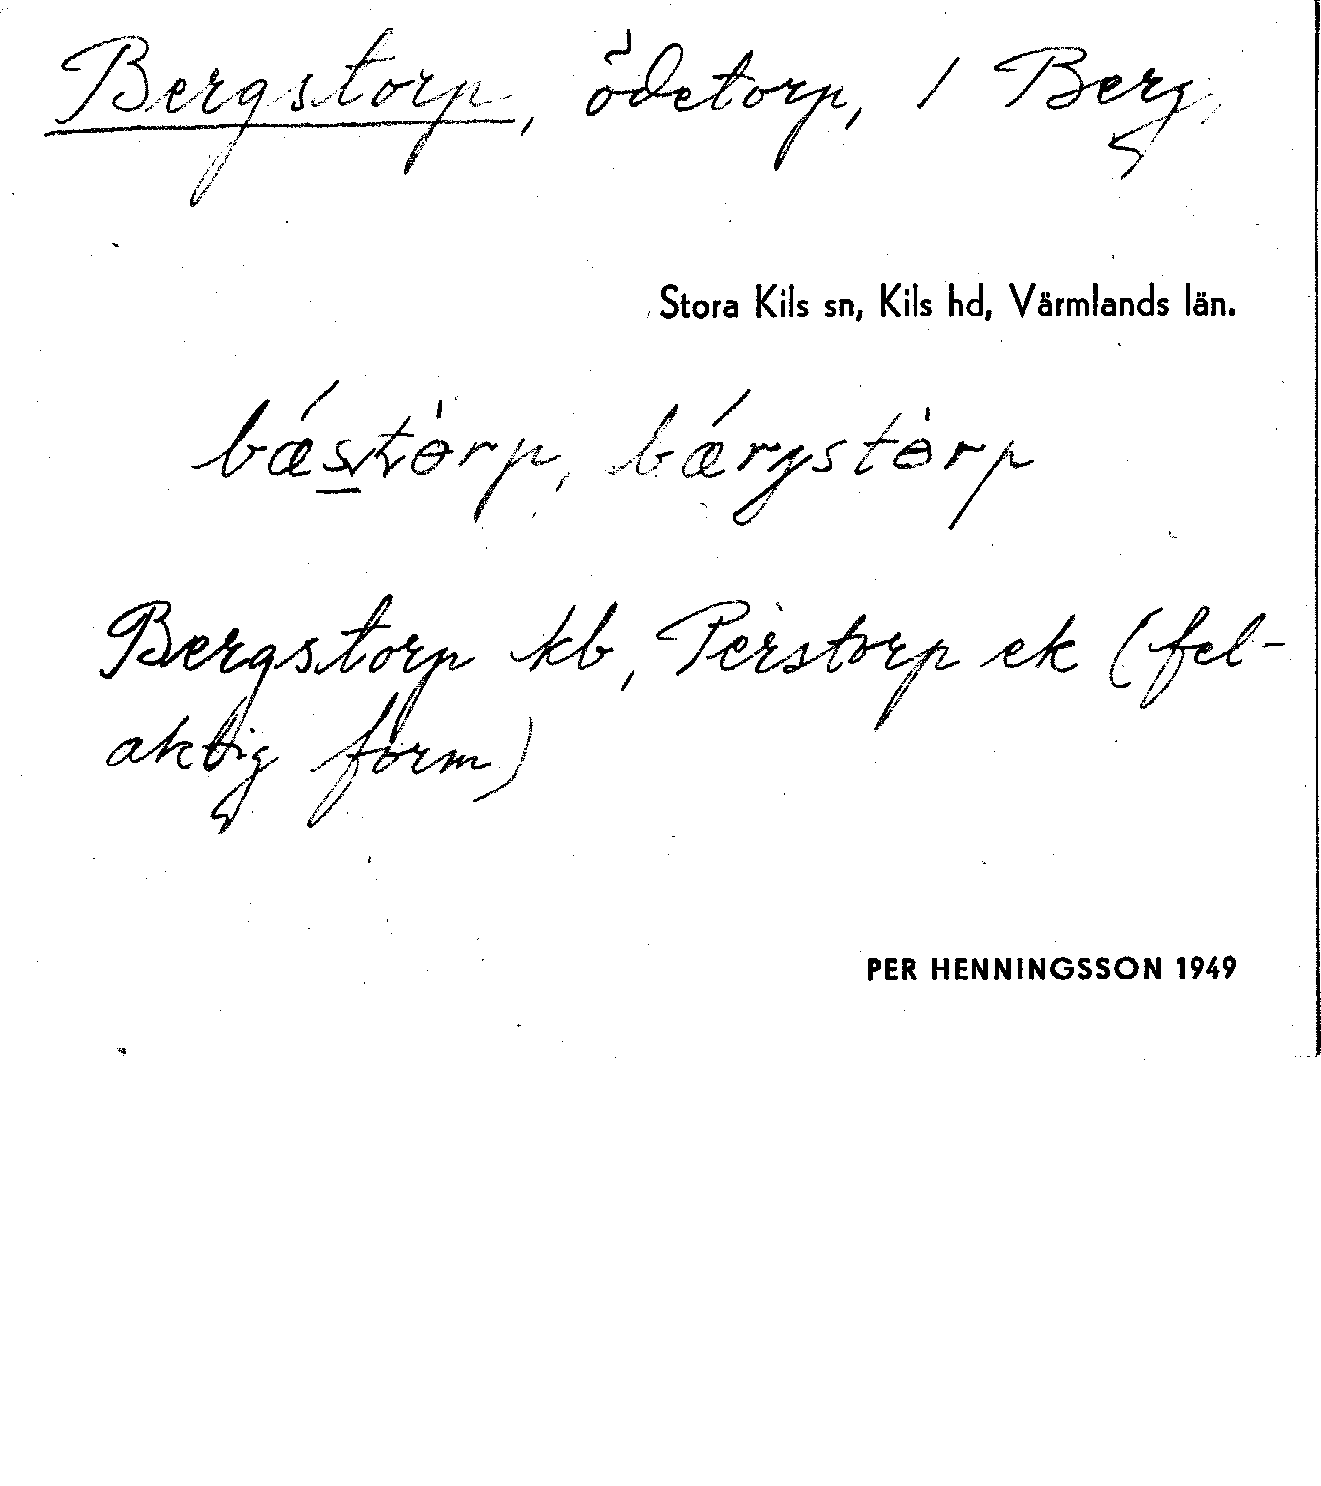 Bergstorp, ödetorp, 1 Berg,
Stora Kils sn, Kils hd, Värmlands län.
bǽstɵ̀rp, bǽrgstɵ̀rp
Bergstorp kb, Perstorp ek (fel-
aktig form)
PER HENNINGSSON 1949